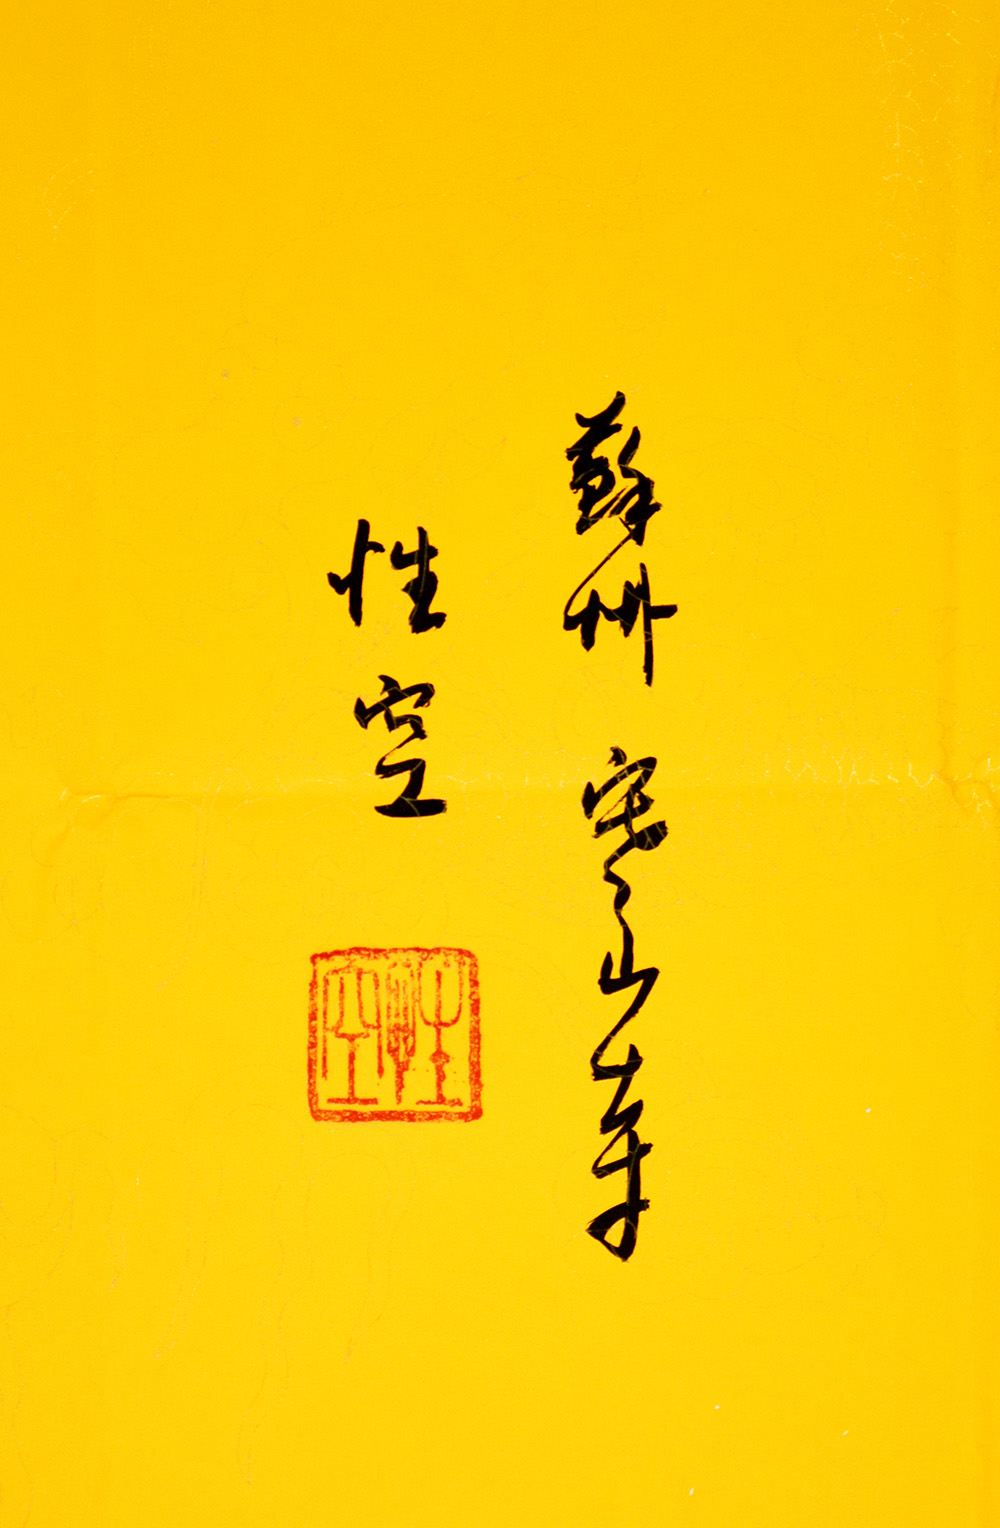 蘇州寒山寺
性空
性空